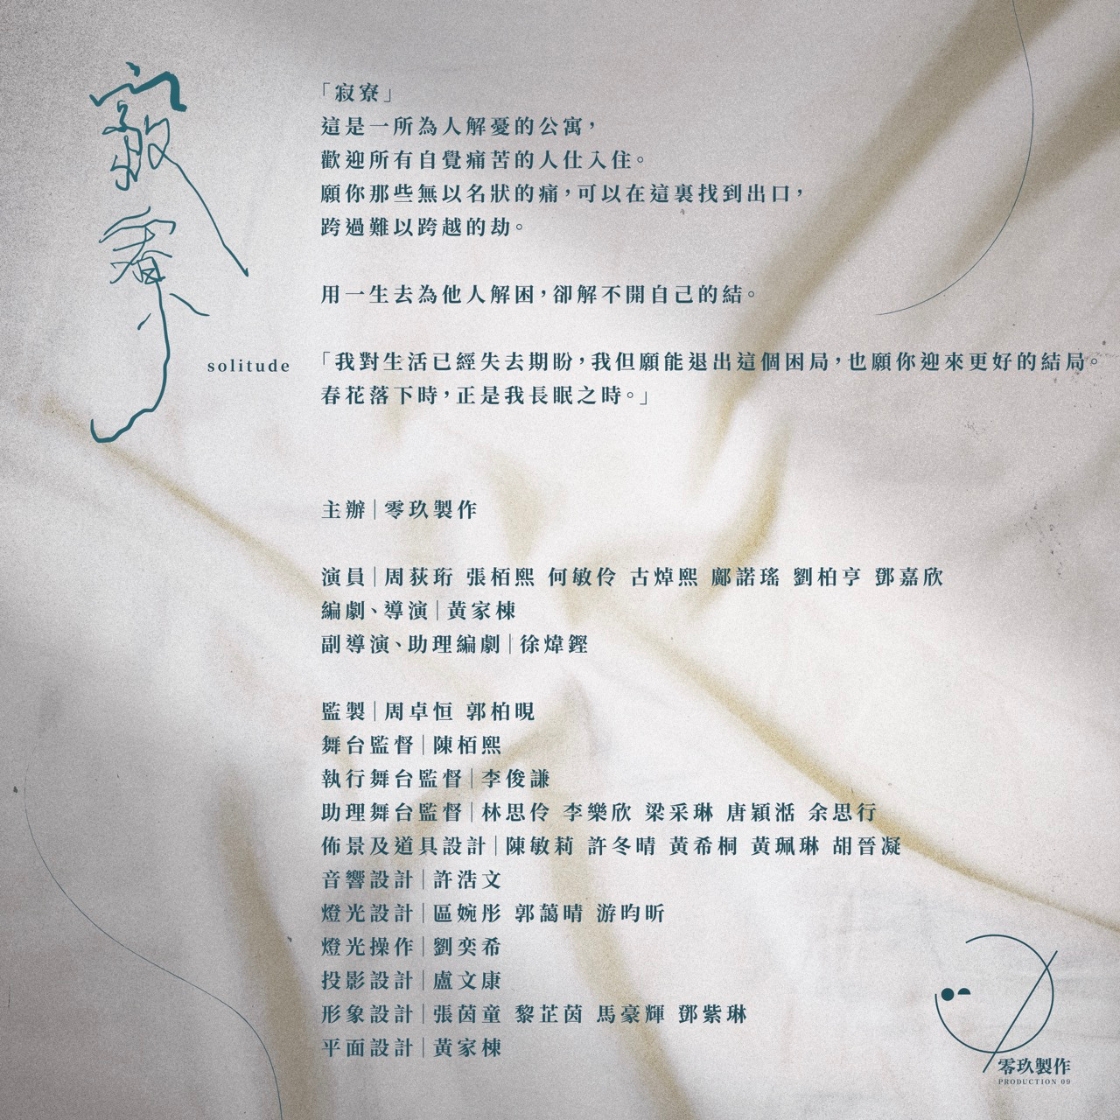 寂寮
solitude
「寂寮」
這是一所為人解憂的公寓，
歡迎所有自覺痛苦的人仕入住。
願你那些無以名狀的痛，可以在這裏找到出口，
跨過難以跨越的劫。
用一生去為他人解困，卻解不開自己的結。
「我對生活已經失去期盼，我但願能退出這個困局，也願你迎來更好的結局。
春花落下時，正是我長眠之時。」
主辦｜零玖製作
演員｜周荻珩 張栢熙 何敏伶 古焯熙 鄺諾瑤 劉柏亨 鄧嘉欣
編劇、導演｜黃家棟
副導演、助理編劇｜徐煒鏗
監製｜周卓恒 郭柏晛
舞台監督｜陳栢熙
執行舞台監督｜李俊謙
助理舞台監督｜林思伶 李樂欣 梁采琳 唐穎湉 余思行
佈景及道具設計｜陳敏莉 許冬晴 黃希桐 黃珮琳 胡晉凝
音響設計｜許浩文
燈光設計｜區婉彤 郭藹晴 游昀昕
燈光操作｜劉奕希
投影設計｜盧文康
形象設計｜張茵童 黎芷茵 馬豪輝 鄧紫琳
平面設計｜黃家棟
零玖製作
PRODUCTION 09